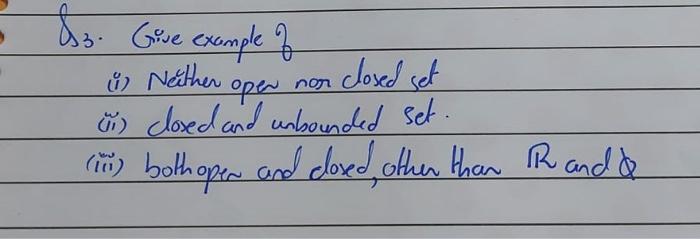 Q3. Give example of
(i) Neither open non closed set
(ii) closed and unbounded set.
(iii) both open and closed, other than ℝ and ϕ